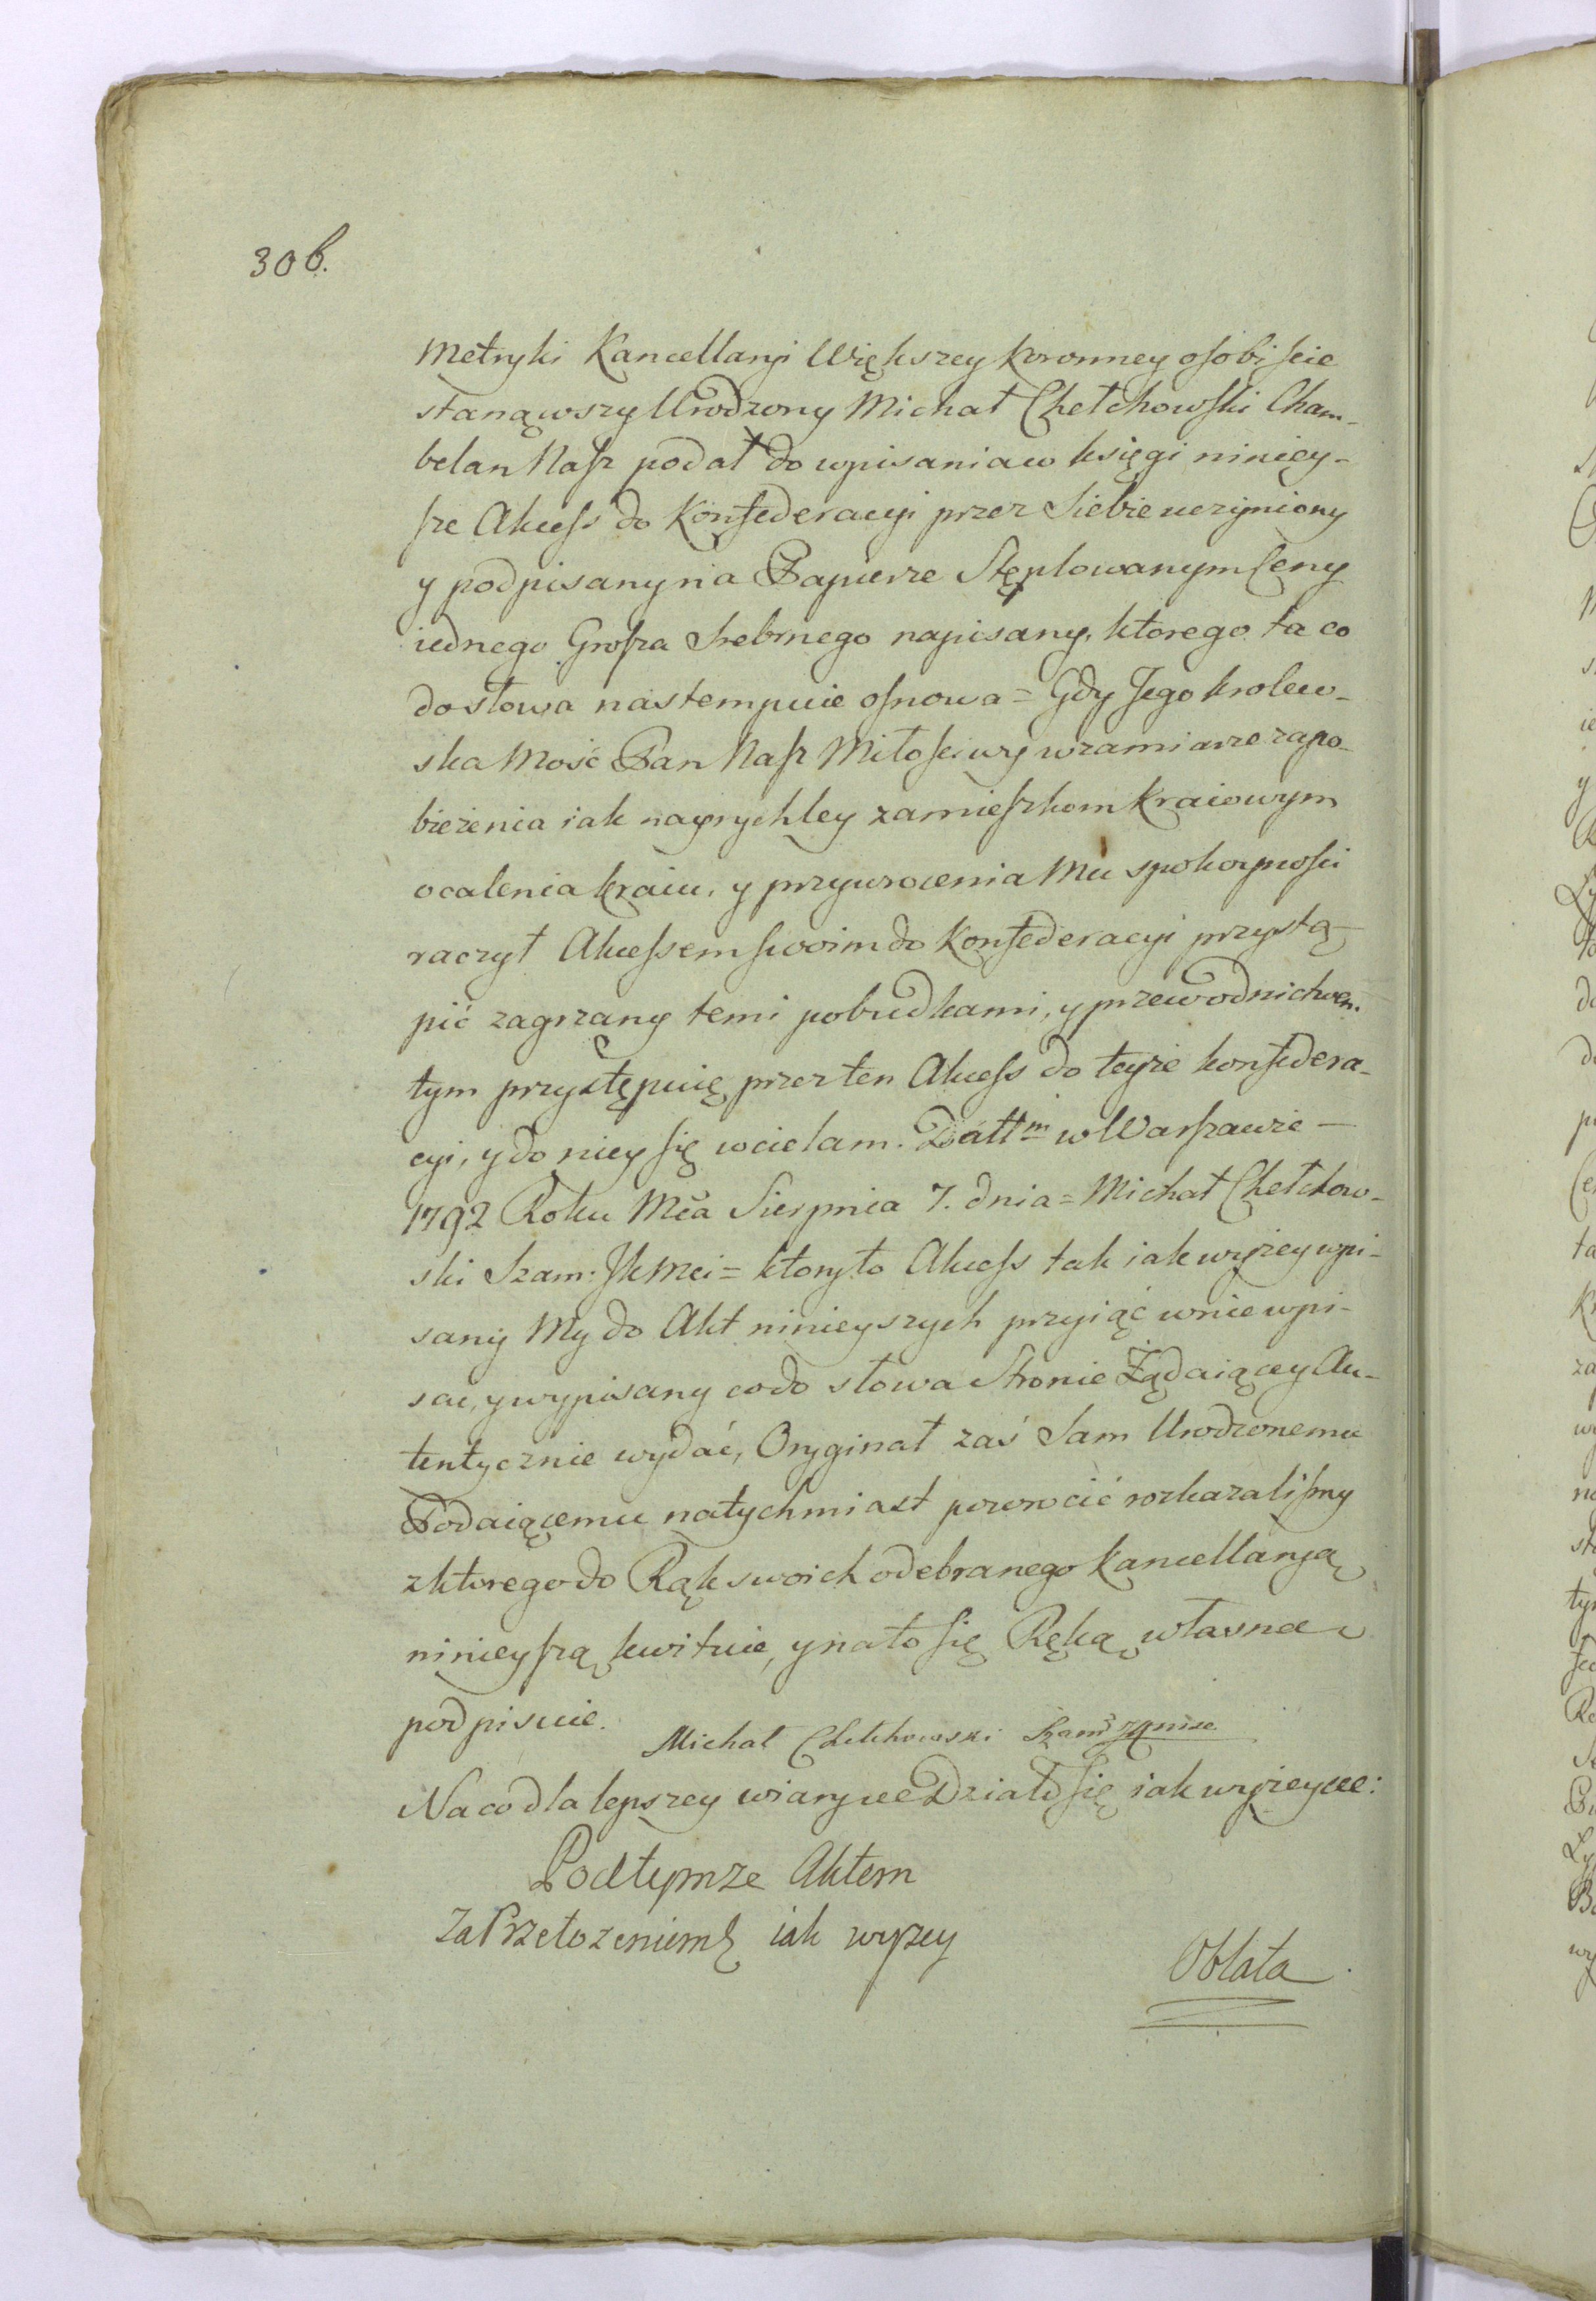 306.
Metryki Kancellaryi Większey Koronney osobiście
stanąwszy Urodzony Michał Chełchowski Cham-
belan Nasz podał do wpisania w księgi niniey-
sze Akcess do Konfederacyi przez Siebie uczyniony
y podpisany na Papierze Stęplowanym Ceny
iednego Grosza Srebrnego napisany, ktorego ta co
do słowa nastempuie osnowa = Gdy Jego krolew-
ska Mość Pan Nasz Miłościwy w zamiarze zapo-
bieżenia iak nayrychley zamieszkom kraiowym
ocalenia kraiu, y przywrocenia Mu spokoyności
raczył Akcessem swoim do Konfederacyi przystą-
pić zagrzany temi pobudkami, y przewodnictwem
tym przystępuię przez ten Akcess do teyże konfedera-
cyi, y do niey się wcielam. Datt m w Warszawie —
1792 Roku Mca Sierpnia 7. dnia = Michał Chełchow-
ski Szam: JKMci = ktory to Akcess tak iak wyżey wpi-
sany My do Akt ninieyszych przyiąć w nie wpi-
sać, y wypisany co do słowa Stronie Żądaiącey Au-
tentycznie wydać, Oryginał zaś Sam Urodzonemu
Podaiącemu natychmiast powrocić rozkazaliśmy
z ktorego do Rąk swoich odebranego Kancellaryą
ninieyszą kwituie, y na to się Ręką własną
podpisuie.
Michał Chełchowski Szam
Na co dla lepszey wiary etc Działo się iak wyżey etc:
Pod tymze Aktem
Za Przełozeniem iak wyzey
Oblata